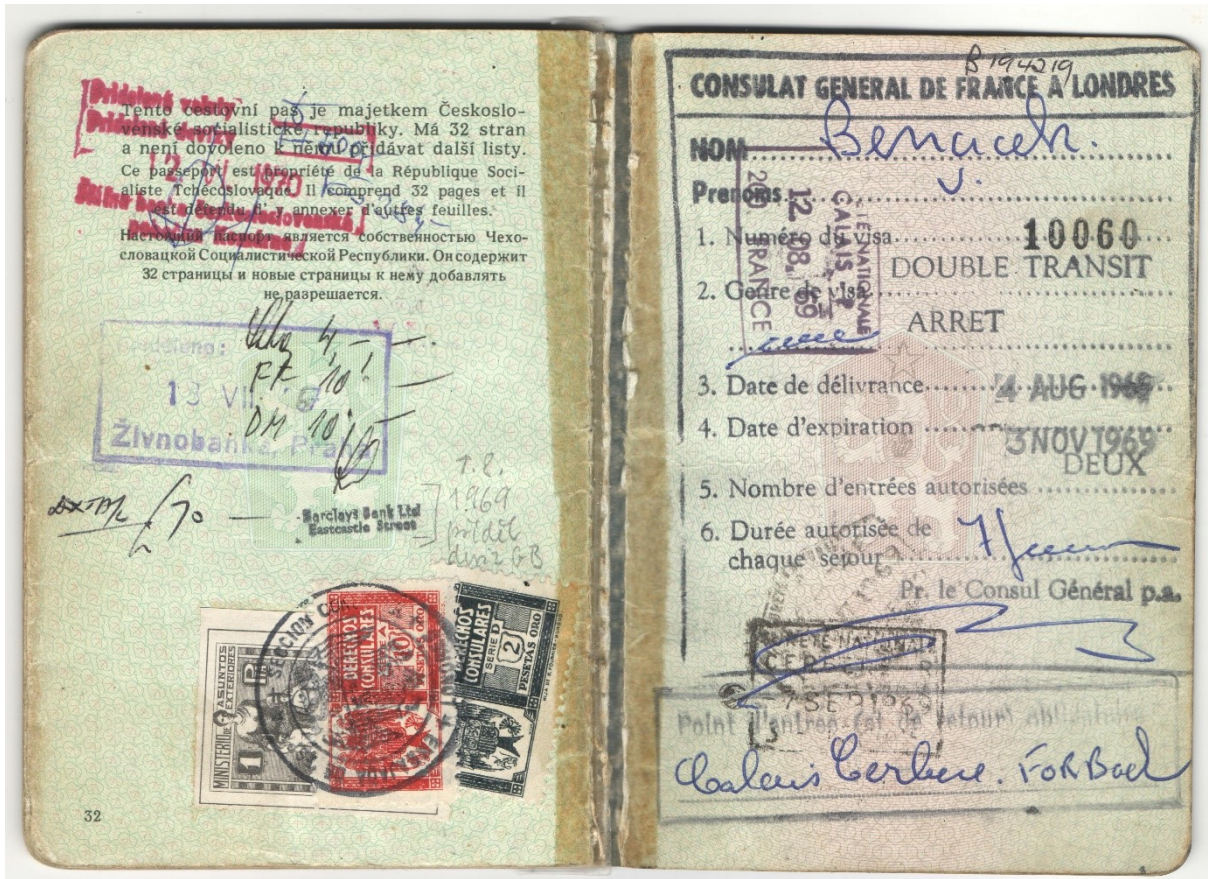 Tento cestovní pas je majetkem Českoslo-
venské socialistické republiky. Má 32 stran
a není dovoleno k němu přidávat další listy.
Ce passeport est propriété de la République Soci-
aliste Tchécoslovaque. Il comprend 32 pages et il
est défendu d'y annexer d'autres feuilles.
Настоящий паспорт является собственностью Чехо-
словацкой Социалистической Республики. Он содержит
32 страницы и новые страницы к нему добавлять
не разрешается.
1970
4,-
FF 10
DM 10
13 VII
Živnobanka, Praha
Barclays Bank Ltd
Eastcastle Street
1.8.
1969
příděl
deviz GB
MINISTERIO DE ASUNTOS EXTERIORES
1
SECCION
DERECHOS CONSULARES
SERIE A
10
PESETAS ORO
DERECHOS CONSULARES
SERIE D
2
PESETAS ORO
32
B194219
CONSULAT GENERAL DE FRANCE A LONDRES
NOM Benacek.
Prenoms J.
CALAIS
12.08.69
FRANCE
1. Numéro du visa 10060
DOUBLE TRANSIT
2. Genre de visa
ARRET
3. Date de délivrance 4 AUG 1969
4. Date d'expiration 3 NOV 1969
DEUX
5. Nombre d'entrées autorisées
6. Durée autorisée de
chaque séjour 7 jours
Pr. le Consul Général p.a.
CERBERE
SEP 1969
Point d'entrée (et de retour) obligatoire
Calais Cerbere. FORBach